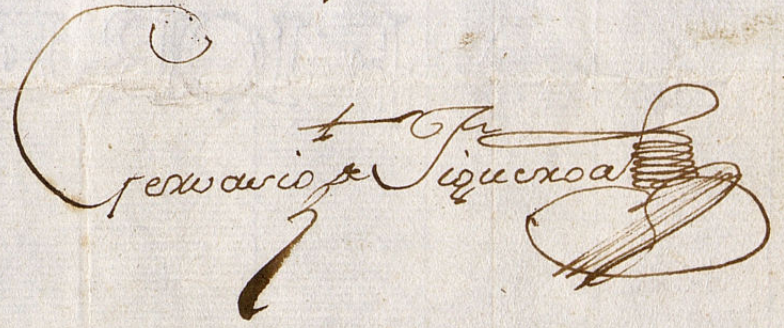 Gervasio de Figueroa